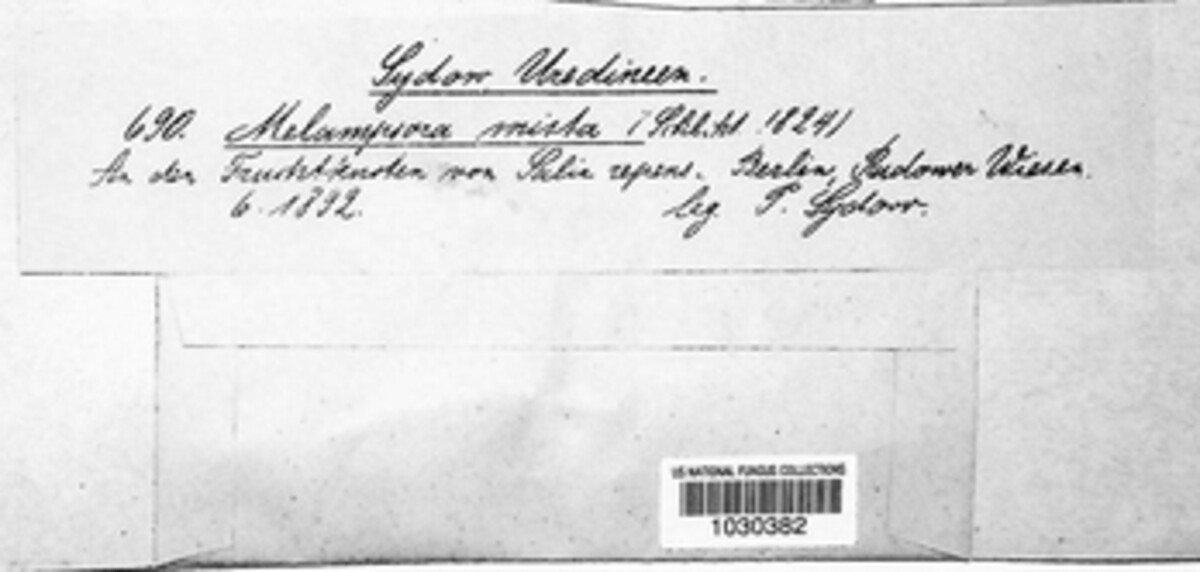 Sydow, Uredineen.
690. Melampsora mixta (Schlcht. 1824)
An den Fruchtknoten von Salix repens. Berlin, Rudower Wiesen.
6. 1892. leg. P. Sydow.
US NATIONAL FUNGUS COLLECTIONS
1030382